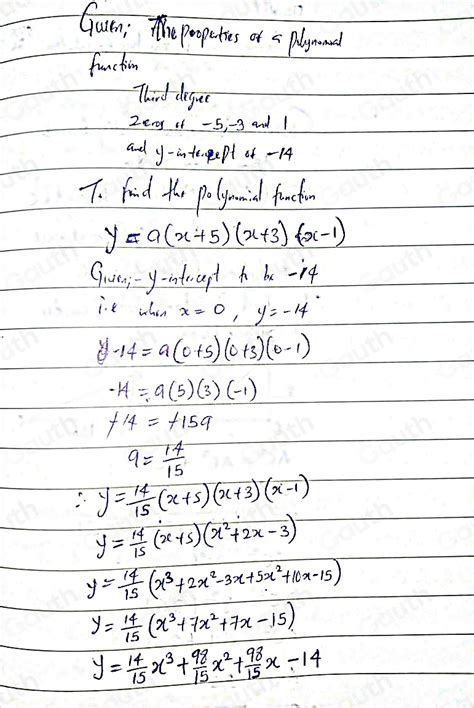 Given; The properties of a polynomial
function
Third degree
Zeros of -5, -3 and 1
and y-intercept of -14
To find the polynomial function
y = a(x+5)(x+3)(x-1)
Given;- y-intercept to be -14
i.e when x = 0, y = -14
-14 = a(0+5)(0+3)(0-1)
-14 = a(5)(3)(-1)
+14 = +15a
a = 14/15
∴ y = 14/15 (x+5)(x+3)(x-1)
y = 14/15 (x+5)(x²+2x-3)
y = 14/15 (x³+2x²-3x+5x²+10x-15)
y = 14/15 (x³+7x²+7x-15)
y = 14/15 x³ + 98/15 x² + 98/15 x - 14